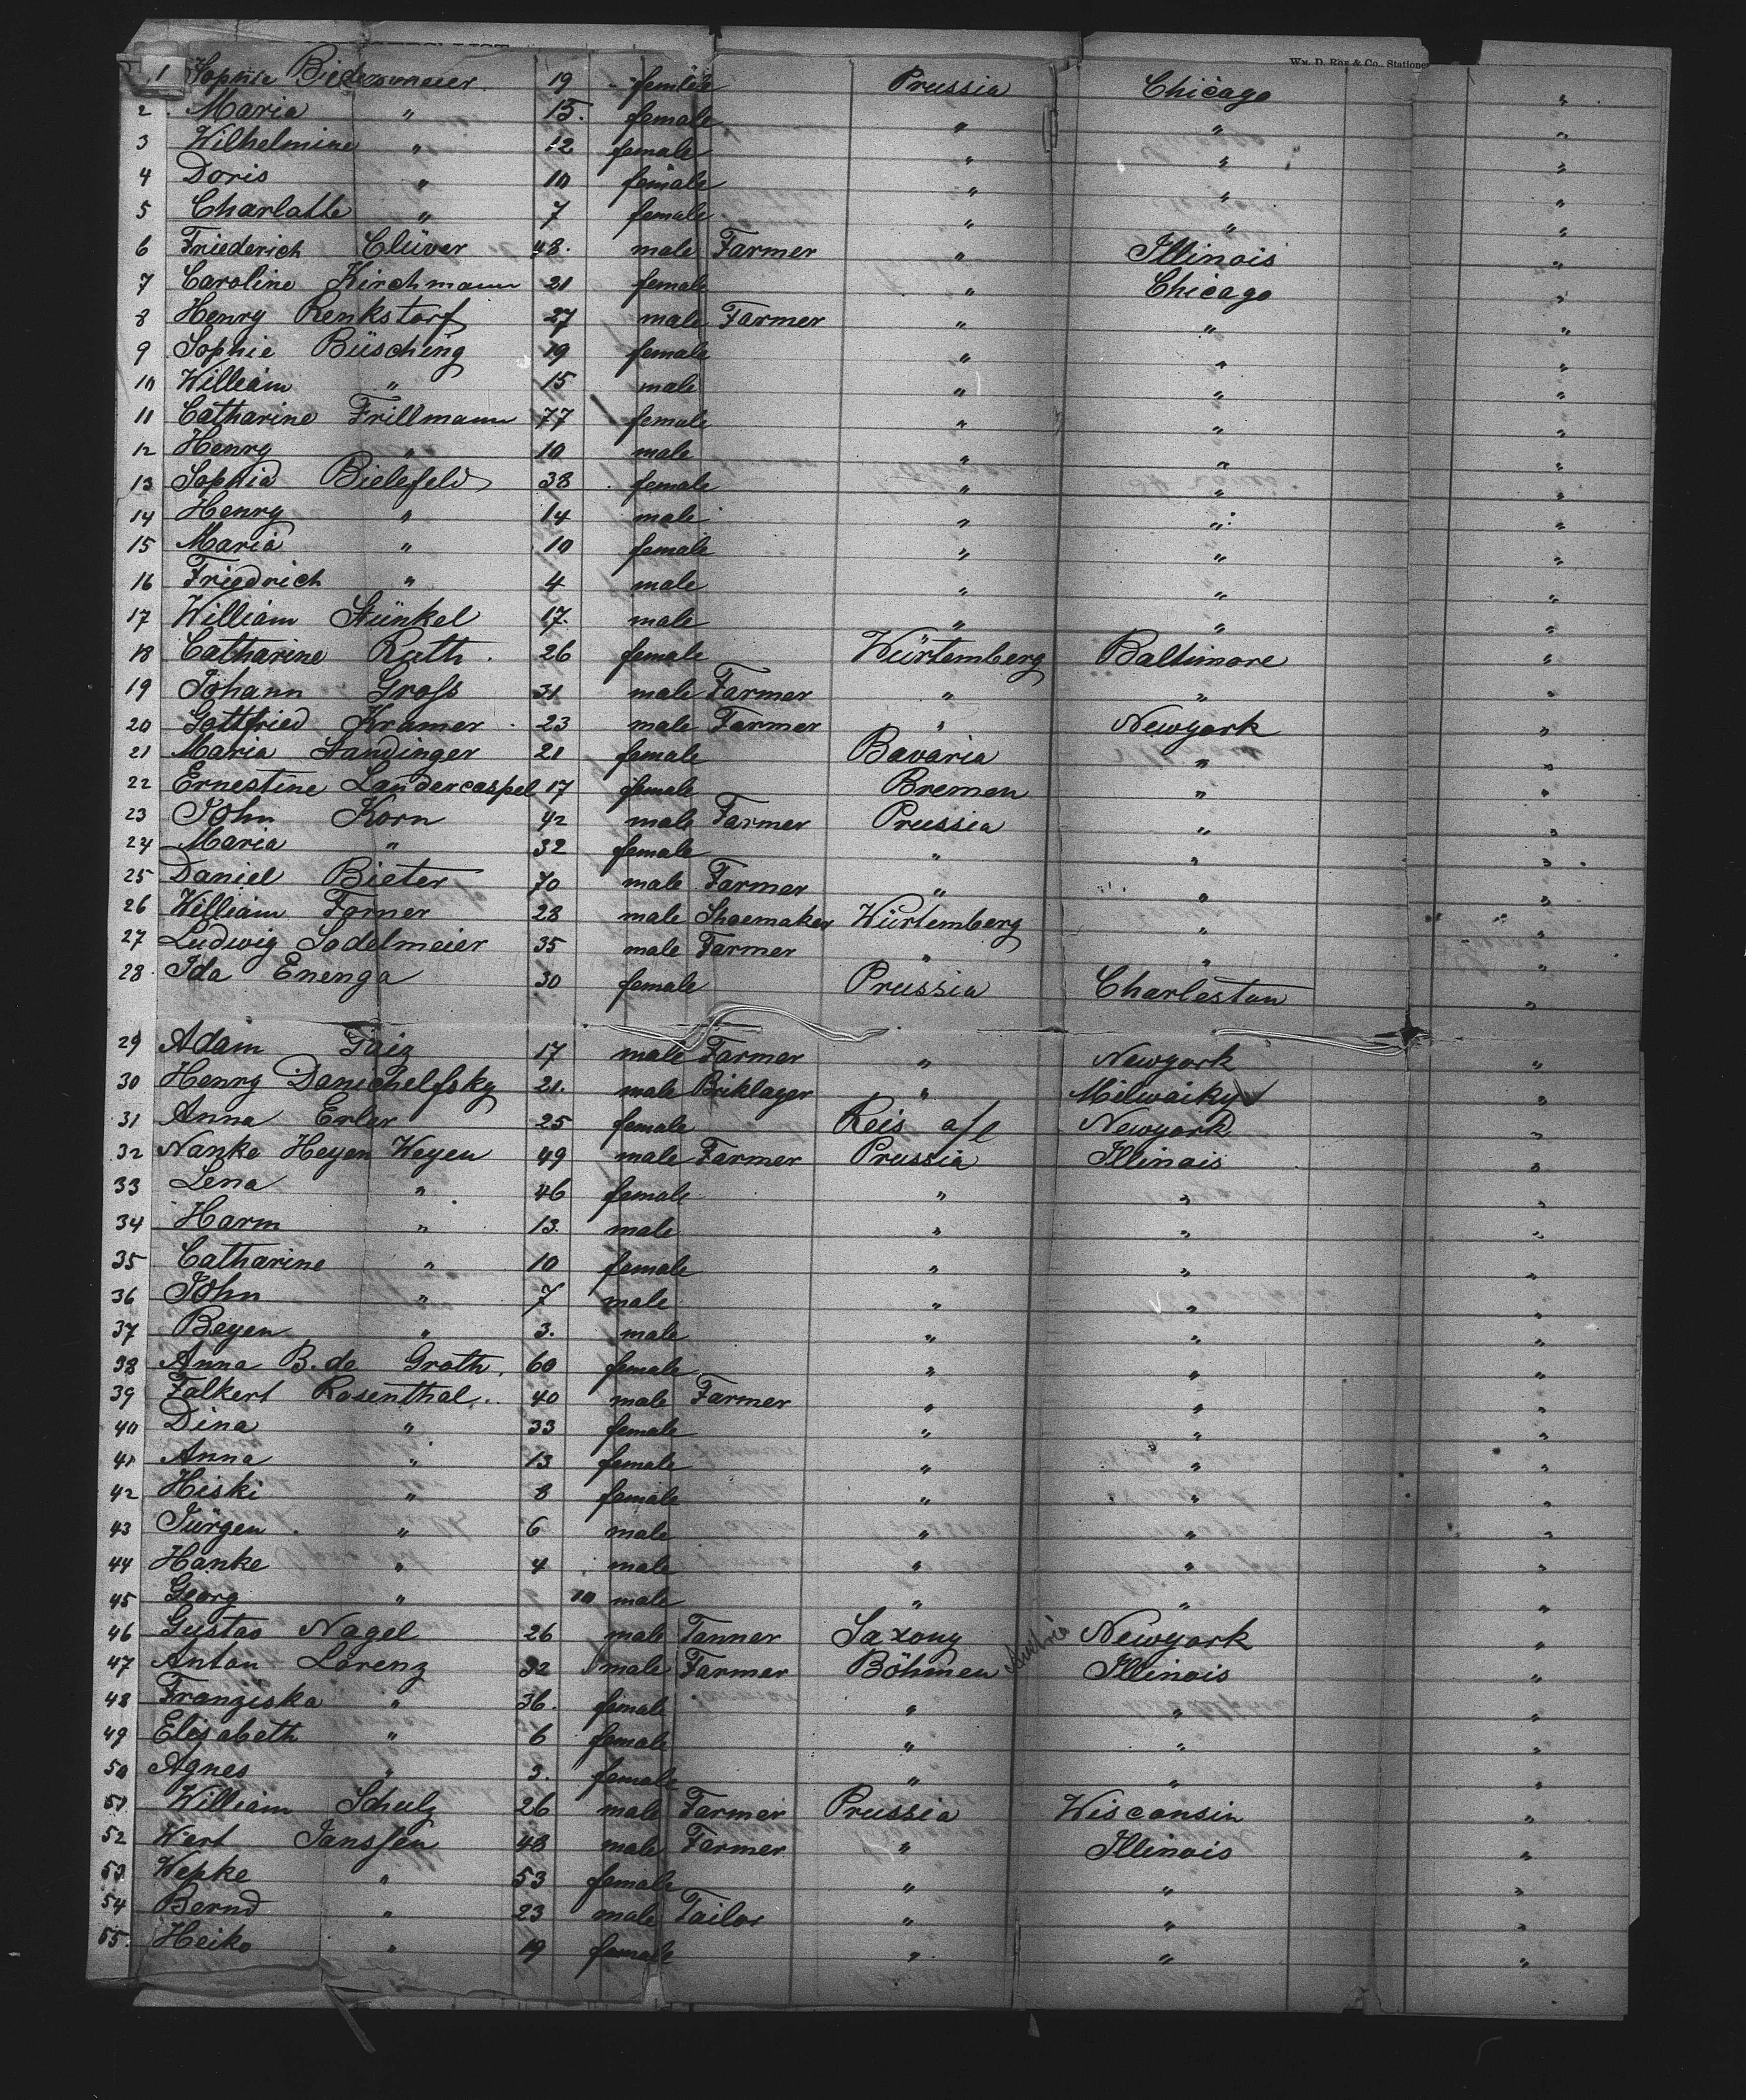 Wm. D. Roe & Co., Statione
1 Sophie Biedermeier. 19 female Prussia Chicago "
2 Maria " 15. female " " "
3 Wilhelmine " 12 female " " "
4 Doris " 10 female " " "
5 Charlotte " 7 female " " "
6 Friederich Clüver 48. male Farmer " Illinois "
7 Caroline Kirchmann 21 female " Chicago "
8 Henry Renkstorf 27 male Farmer " " "
9 Sophie Büsching 19 female " " "
10 William " 15 male " " "
11 Catharine Frillmann 77 female " " "
12 Henry " 10 male " " "
13 Sophia Bielefeld 38 female " " "
14 Henry " 14 male " " "
15 Maria " 10 female " " "
16 Friedrich " 4 male " " "
17 William Stünkel 17. male " " "
18 Catharine Rath. 26 female Würtemberg Baltimore "
19 Johann Gross 31 male Farmer " " "
20 Gottfried Kramer 23 male Farmer " Newyork "
21 Maria Standinger 21 female Bavaria " "
22 Ernestine Landercaspel 17 female Bremen " "
23 John Korn 42 male Farmer Prussia " "
24 Maria " 32 female " " "
25 Daniel Bieter 70 male Farmer " " "
26 William Farner 28 male Shoemaker Würtemberg " "
27 Ludwig Sadelmeier 35 male Farmer " " "
28 Ida Enenga 30 female Prussia Charleston "
29 Adam Faig 17 male Farmer " Newyork "
30 Henry Danichelfsky 21. male Briklayer " Milwaiky "
31 Anna Erler 25 female Reis a/e Newyork "
32 Nanke Heyen Weyen 49 male Farmer Prussia Illinois "
33 Lena " 46 female " " "
34 Harm " 13. male " " "
35 Catharine " 10 female " " "
36 John " 7 male " " "
37 Beyen " 3. male " " "
38 Anna B. de Groth. 60 female " " "
39 Falkert Rosenthal.. 40 male Farmer " " "
40 Dina " 33 female " " "
41 Anna " 13 female " " "
42 Hiski " 8 female " " "
43 Jürgen " 6 male " " "
44 Hanke " 4 male " " "
45 Georg " 10 male " " "
46 Gustav Nagel 26 male Tanner Saxony Newyork "
47 Anton Lorenz 32 male Farmer Böhmen Austria Illinois "
48 Franziska " 36. female " " "
49 Elisabeth " 6 female " " "
50 Agnes " 3. female " " "
51 William Schulz 26 male Farmer Prussia Wisconsin "
52 Wert Janssen 48 male Farmer " Illinois "
53 Wepke " 53 female " " "
54 Bernd " 23 male Tailor " " "
55. Heiko " 19 female " " "